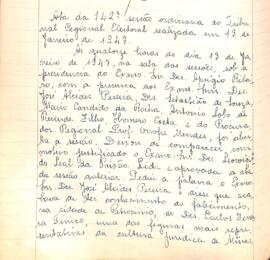 Ata da 142ª sessão ordinaria do Tribu-
nal Regional Eleitoral realizada em 13 de
Janeiro de 1947
Ás quatorze horas do dia 13 de Ja-
neiro de 1947, na sala das sessões, sob a
presidencia do Exmo. Snr. Des. Aprigio Ribei-
ro, com a presença dos Exmos. Snrs. Des.
José Alcides Pereira, Drs. Sebastião de Souza,
Mario Candido da Rocha, Antonio Lobo de
Rezende Filho, Homero Costa e do Procura-
dor Regional Prof. Onofre Mendes, foi aber-
ta a sessão. Deixou de comparecer, com
motivo justificado o Exmo. Snr. Des. Leonidio
Leal da Paixão. Lida e aprovada a ata
da sessão anterior. Pediu a palavra o Exmo
Snr. Des. José Alcides Pereira e disse que aca-
bara de ter conhecimento do falecimento,
na cidade de Patrocinio, do Des. Carlos
uma das figuras mais repre-
sentativas da cultura juridica de Minas